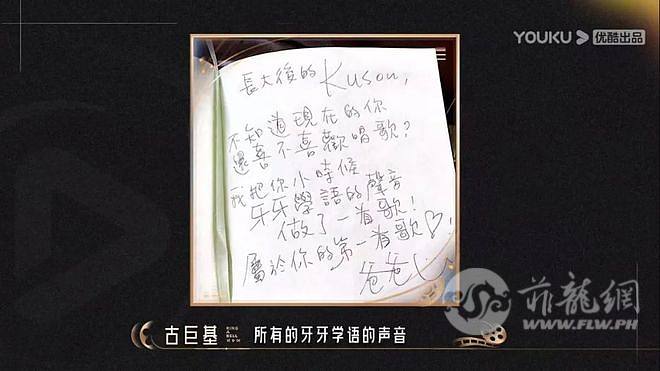 YOUKU 优酷出品
長大後的 Kuson,
不知道現在的你
還喜不喜歡唱歌?
我把你小時候
牙牙學語的聲音
做了一首歌!
屬於你的第一首歌♡!
爸爸
菲龍網
WWW.FLW.PH
古巨基 RING A BELL 所有的牙牙学语的声音